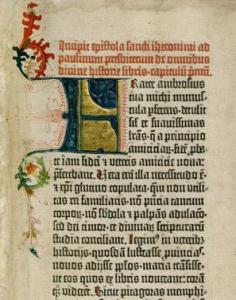 Incipit epistola sancti iheronimi ad
paulinum presbiterum de omnibus
divine historie libris· capitulū pmū.
FRater ambrosius
tua michi munus-
cula pferens· detulit
sil et suavissimas
lrās· q̄ a principio
amiciciar· fidē pba-
te iam fidei et veteris amicicie nova:
pferebant. Vera em̄ illa necessitudo ē·
et xp̄i glutino copulata· qm̄ non vili-
tas rei familiaris· nō pn̄cia tantum
corpor· nō sbdola et palpās adulacō·
sed dei timor· et divinar scripturarum
studia conciliant. Legim in veterib
historijs· quosdā lustrasse puīcias·
novos adijsse pplos· maria trāsisse·
ut eos quos ex libris noverant: corā
q; viderēt. Sicut pitagoras memphi-